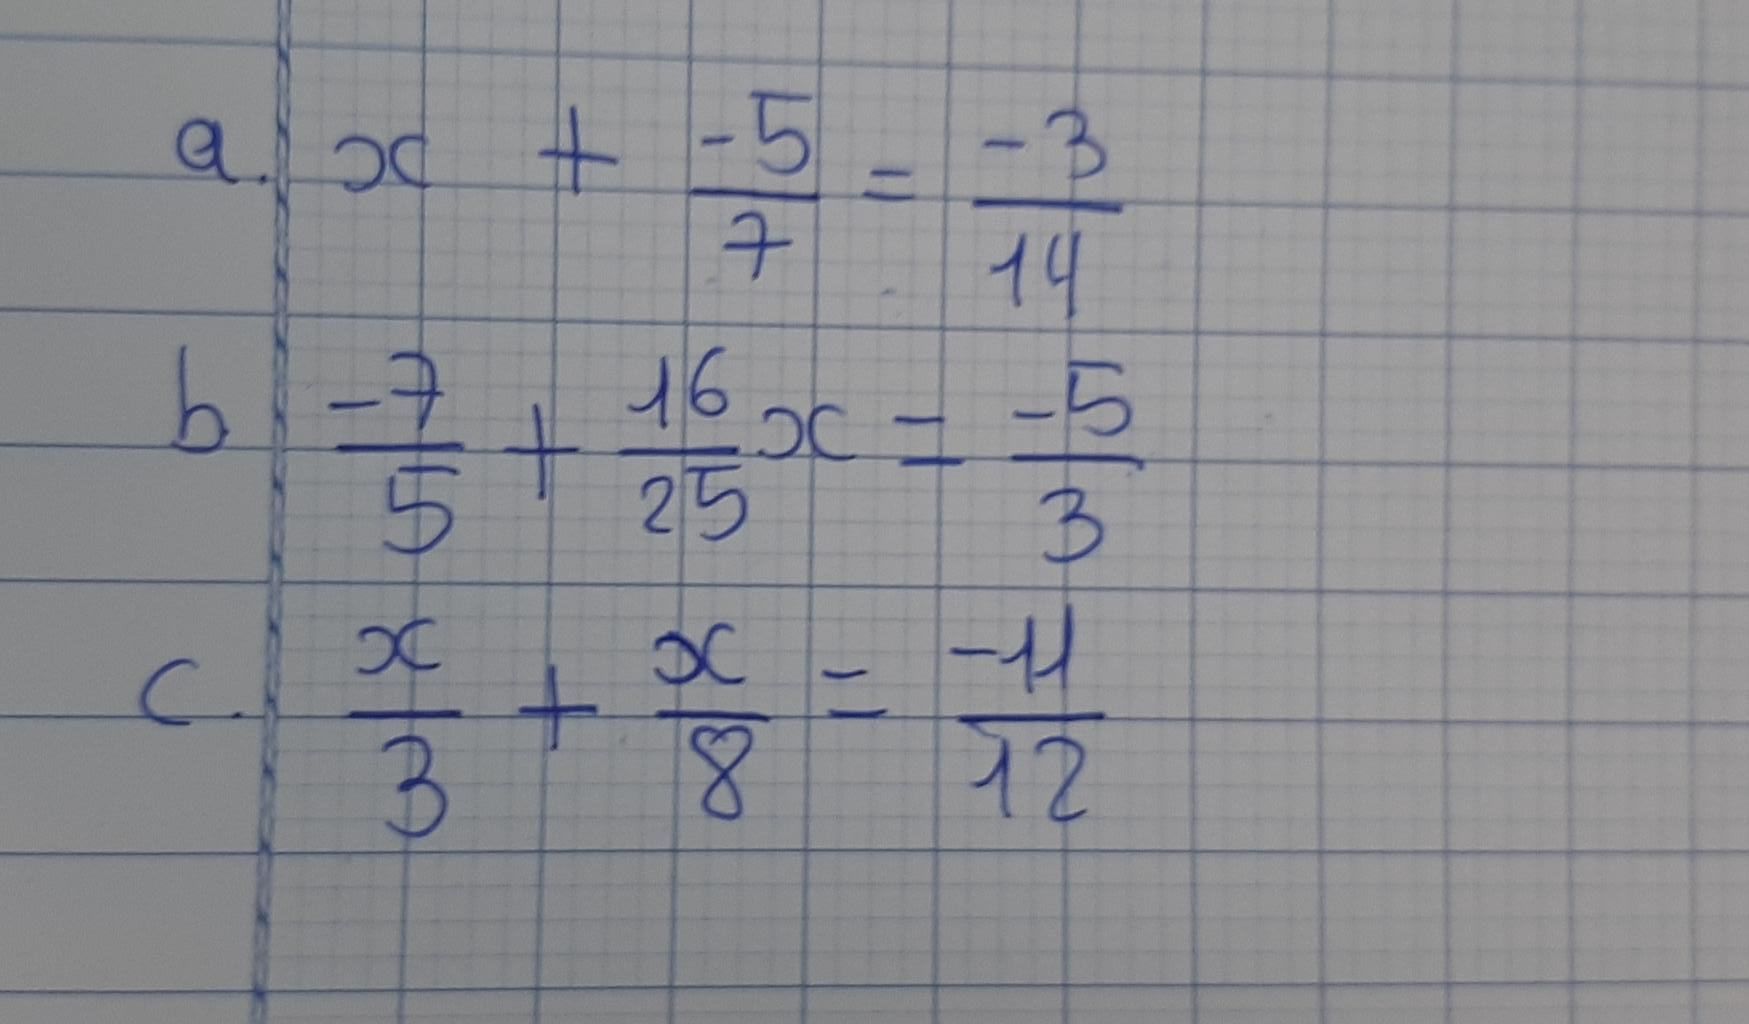 a. x + -5/7 = -3/14
b -7/5 + 16/25 x = -5/3
c. x/3 + x/8 = -11/12